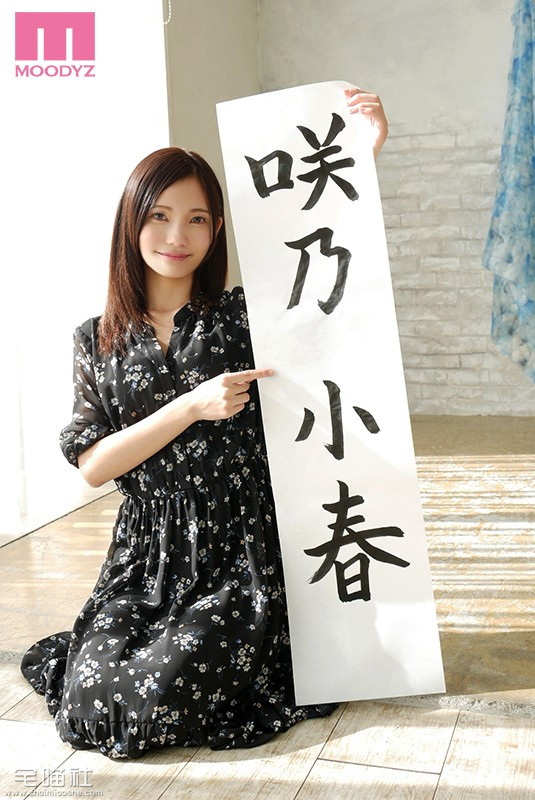 M
MOODYZ
咲乃小春
宅喵社
www.zhaimiaoshe.com